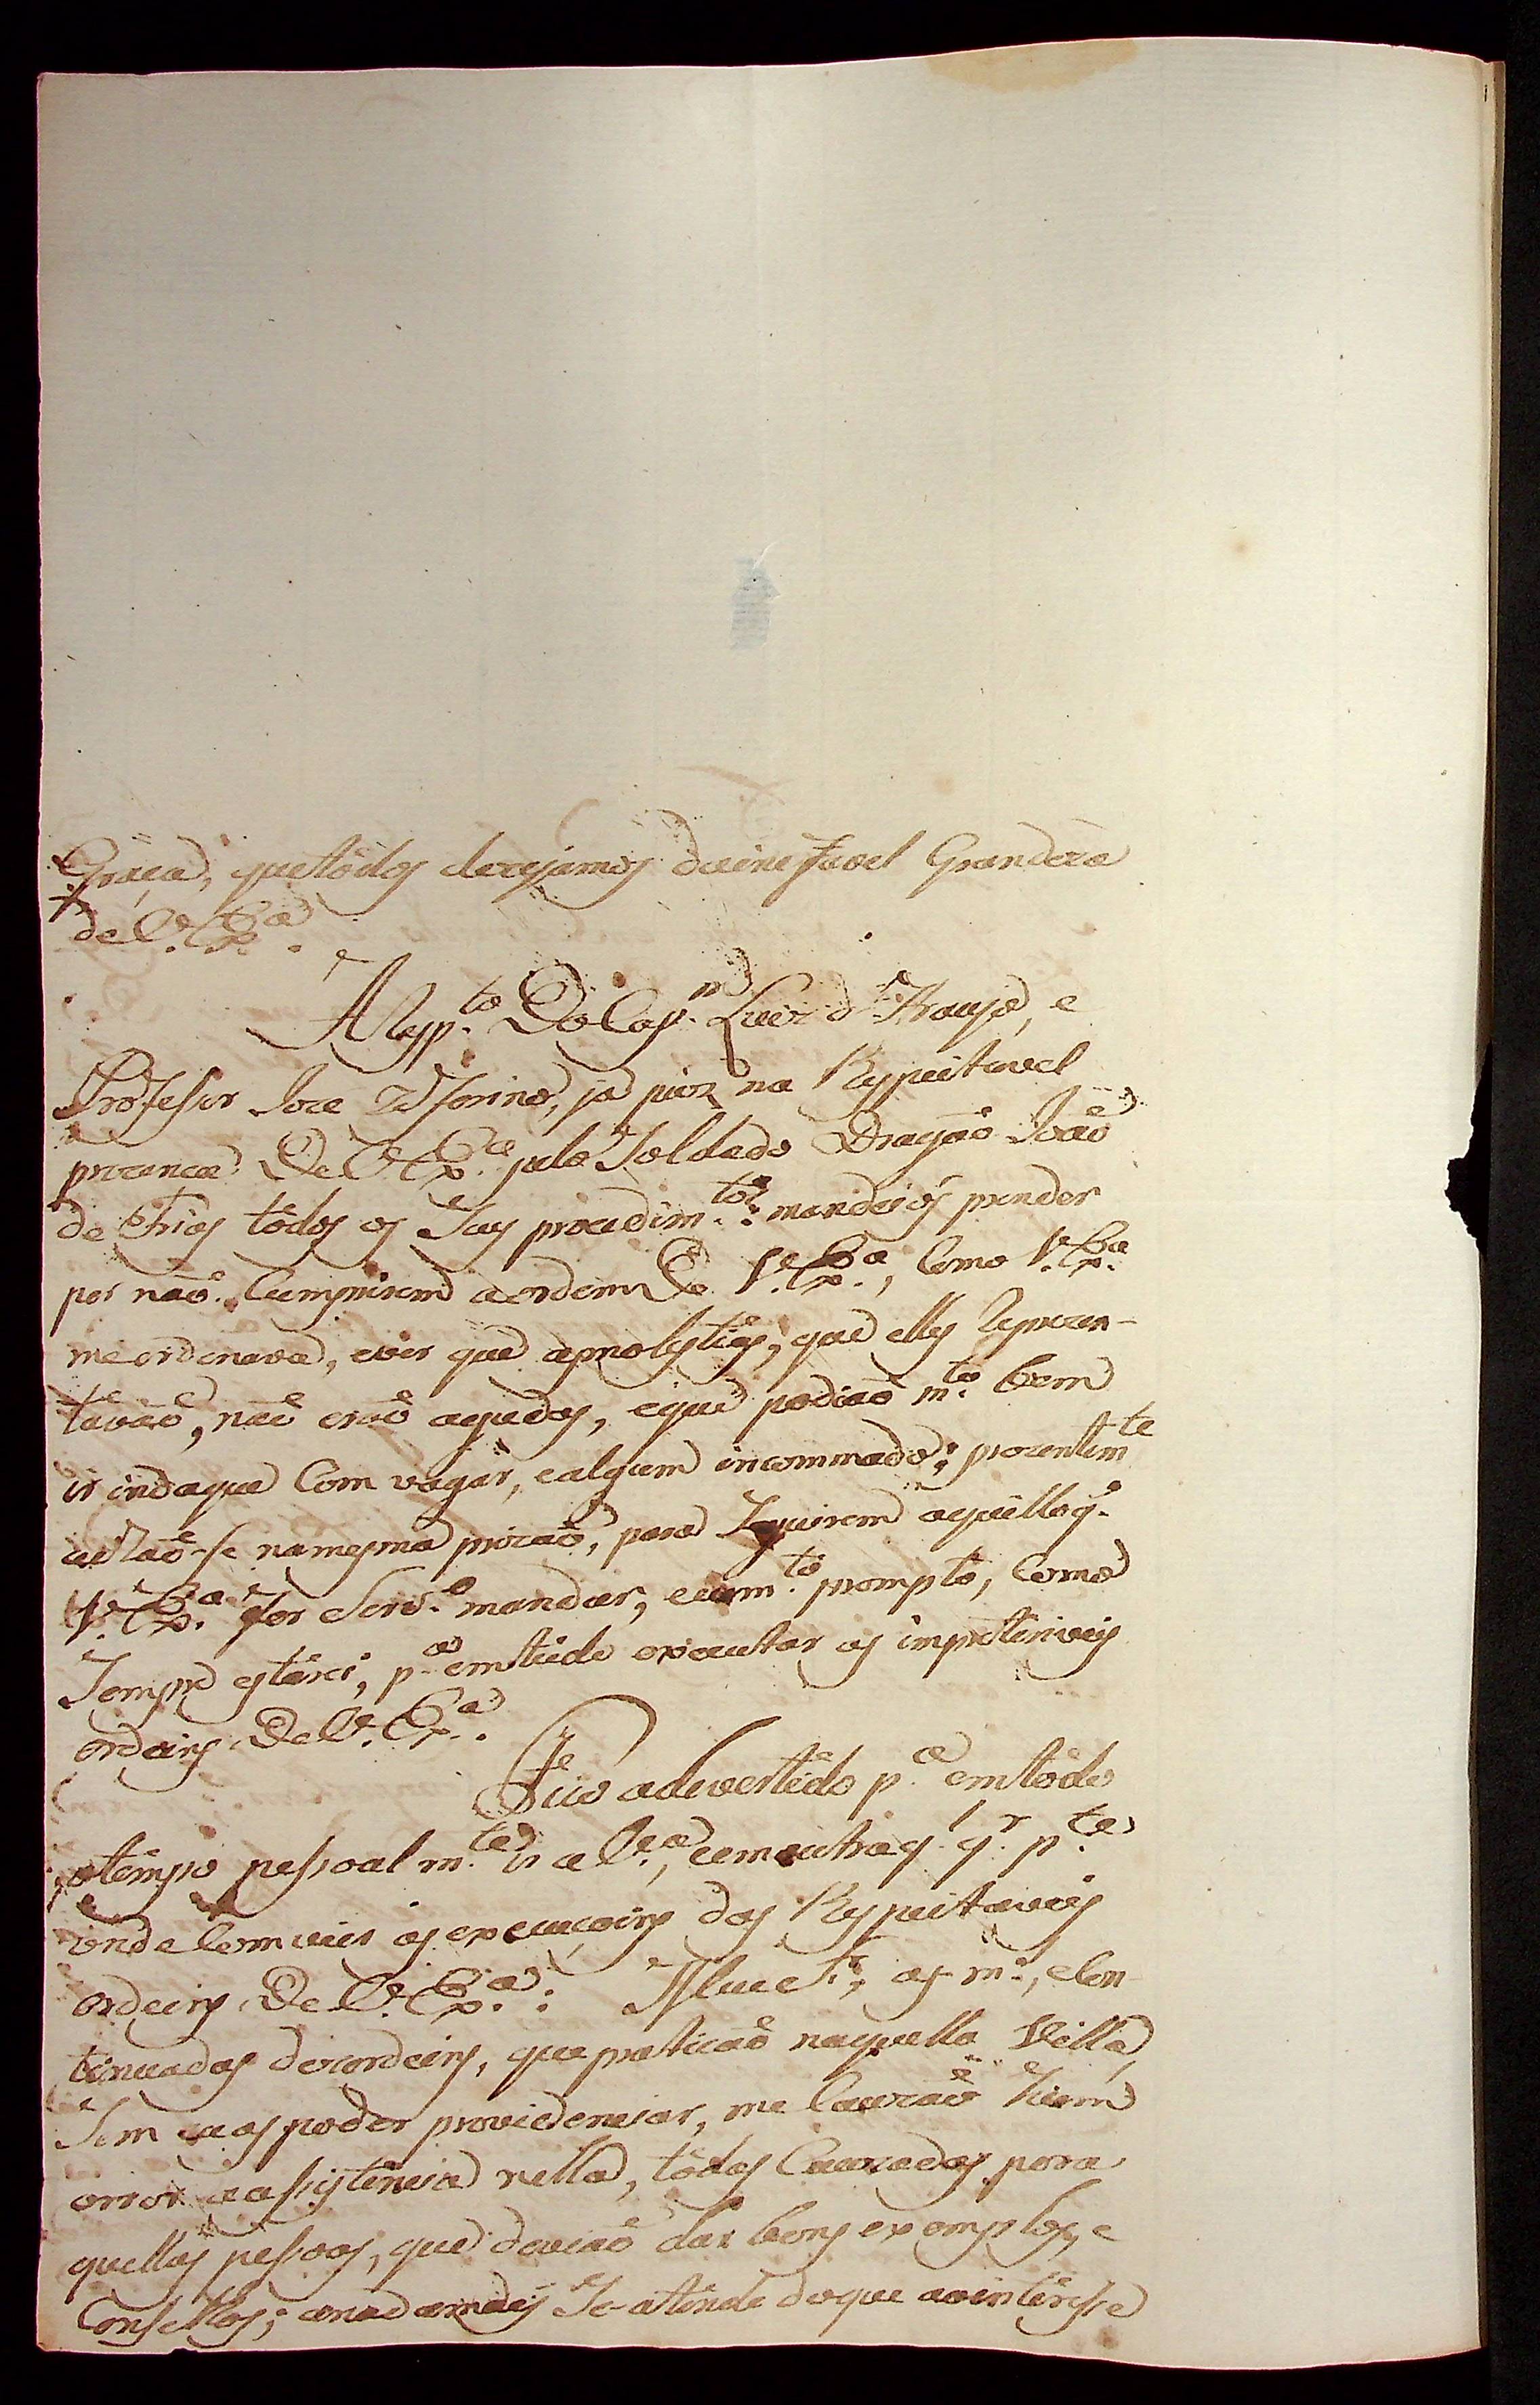 Graça, que tôdos dezejamos da inefavel Grandeza
de V. Exª.
A Resp.to Do Cap.m Luiz d'Araujo, e
Professor Joze Victorino, ja puz na Respeitavel
prezença De V. Exª. pelo Soldado Dragaõ Joaõ
de Frias tôdos os Seus procedim.tos: mandei-os prender
por naõ Cumprirem a ordem De V. Exª., Como V. Exª.
me ordenava, e ver que as molestias, que elles Reprezen-
tavaõ, naõ eraõ agudas, e que podiaõ m.to bem
ir inda que Com vagar, e algum incommodo; prezentem.te
achaõ-se na mesma prizaõ, para Seguirem aquillo q.
V. Exª. for Serv.o mandar, e eu m.to prompto, Como
Sempre estarei, p.a em tudo executar as impreteriveis
ordeins De V. Exª.
Fico adevertido p.a em tôdo
o tempo pessoal m.te ir a V.a, e em outra q.l q.r p.te
onde Comvier as execuçoins das Respeitaveis
ordeins De V. Exª.: As m.s, e Con-
tinuadas dezordeins, que praticaõ naquella Villa,
Sem eu as poder providenciar, me Cauzaõ hum
orror a assistencia nella, tôdas Cauzadas por a
quellas pessoas, que deviaõ dar bons exemplos, e
Conselhos; e nada mais Se atende do que ao interesse